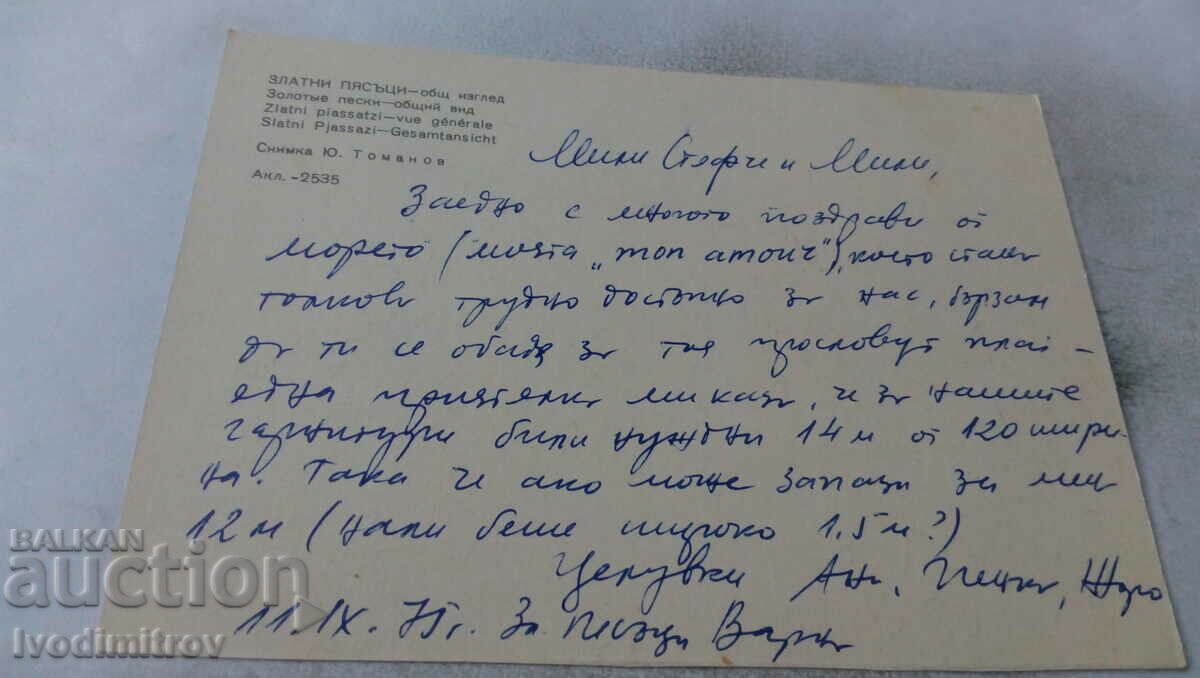 ЗЛАТНИ ПЯСЪЦИ—общ изглед
Золотые пески—общий вид
Zlatni piassatzi—vue générale
Slatni Pjassazi—Gesamtansicht
Снимка Ю. Томанов
Акл. -2535
Мили Стефчи и Мили,
Заедно с многото поздрави от
морето (моята „mon amour"), което стана
толкова трудно достъпно за нас, бързам
да ти се обадя за тоя прословут плат -
една приятелка ми каза, че за нашите
гарнитури били нужни 14 м от 120 шири-
на. Така че ако може запази за мен
12 м (нали беше широко 1.5 м?)
Целувки Ани, Жоро
11.IX.75г. Зл. Пясъци Варна
BALKAN
auction
Ivodimitrov